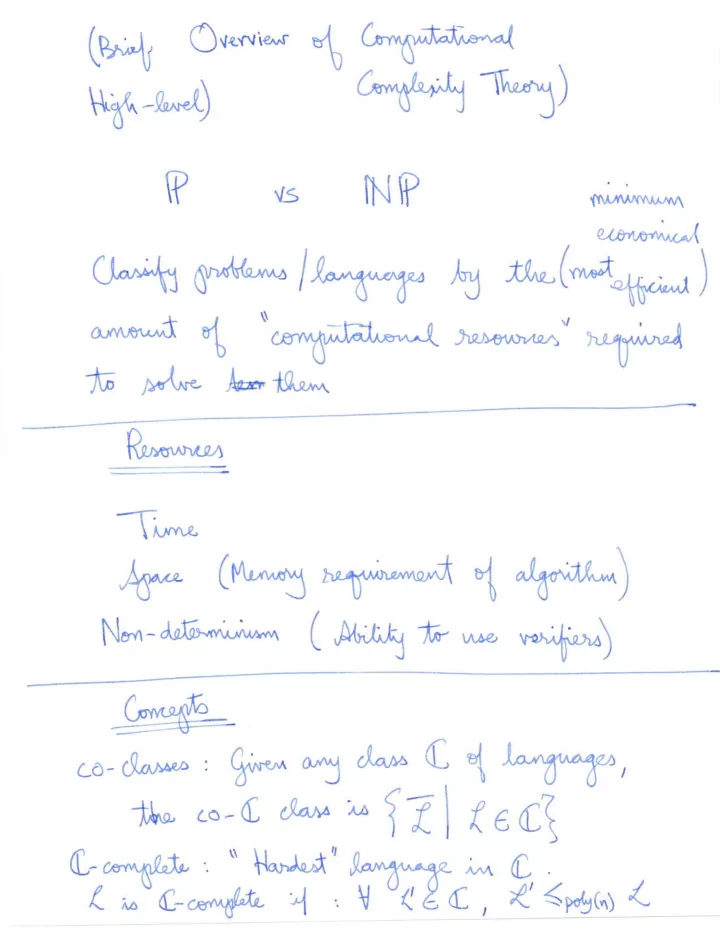 (Brief, Overview of Computational
High-level) Complexity Theory)
ℙ vs ℕℙ
minimum
economical
Classify problems/languages by the (most efficient)
amount of "computational resources" required
to solve them
Resources
Time
Space (Memory requirement of algorithm)
Non-determinism (Ability to use verifiers)
Concepts
co-classes : Given any class ℂ of languages,
the co-ℂ class is { L̅ | L ∈ ℂ}
ℂ-complete : "Hardest" language in ℂ.
L is ℂ-complete if : ∀ L' ∈ ℂ, L' ≤poly(n) L